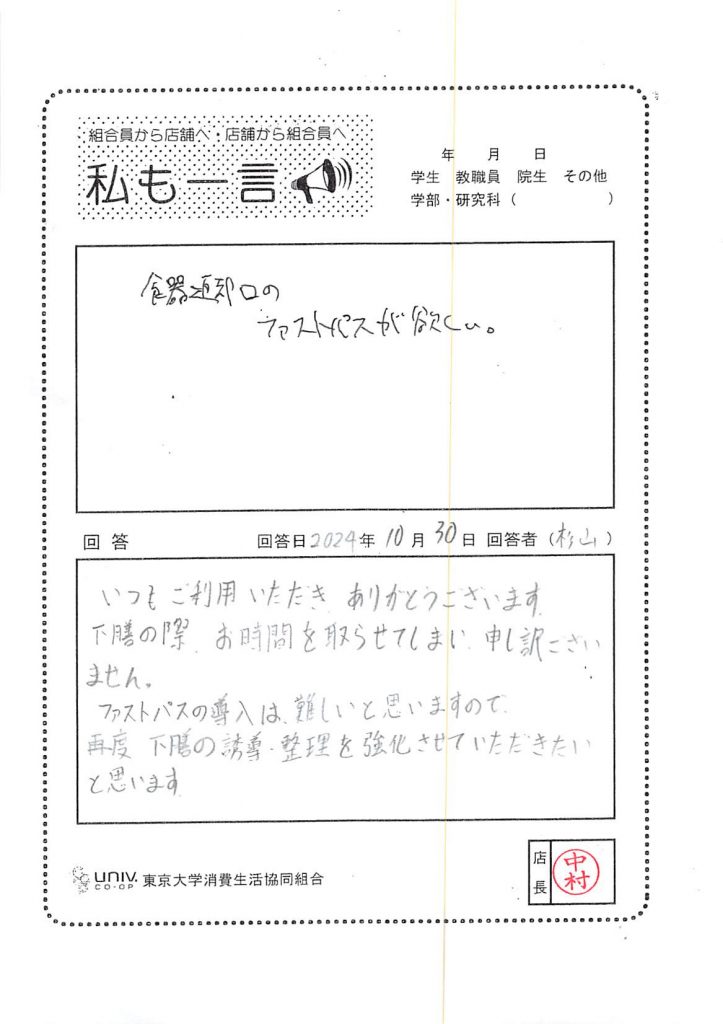 組合員から店舗へ・店舗から組合員へ
私も一言
年 月 日
学生 教職員 院生 その他
学部・研究科( )
食器返却口の
ファストパスが欲しい。
回答 回答日2024年10月30日 回答者(杉山)
いつもご利用いただき ありがとうございます
下膳の際、お時間を取らせてしまい 申し訳ござい
ません。
ファストパスの導入は、難しいと思いますので、
再度 下膳の誘導・整理を強化させていただきたい
と思います
UNIV.
CO-OP
東京大学消費生活協同組合
店長
中村